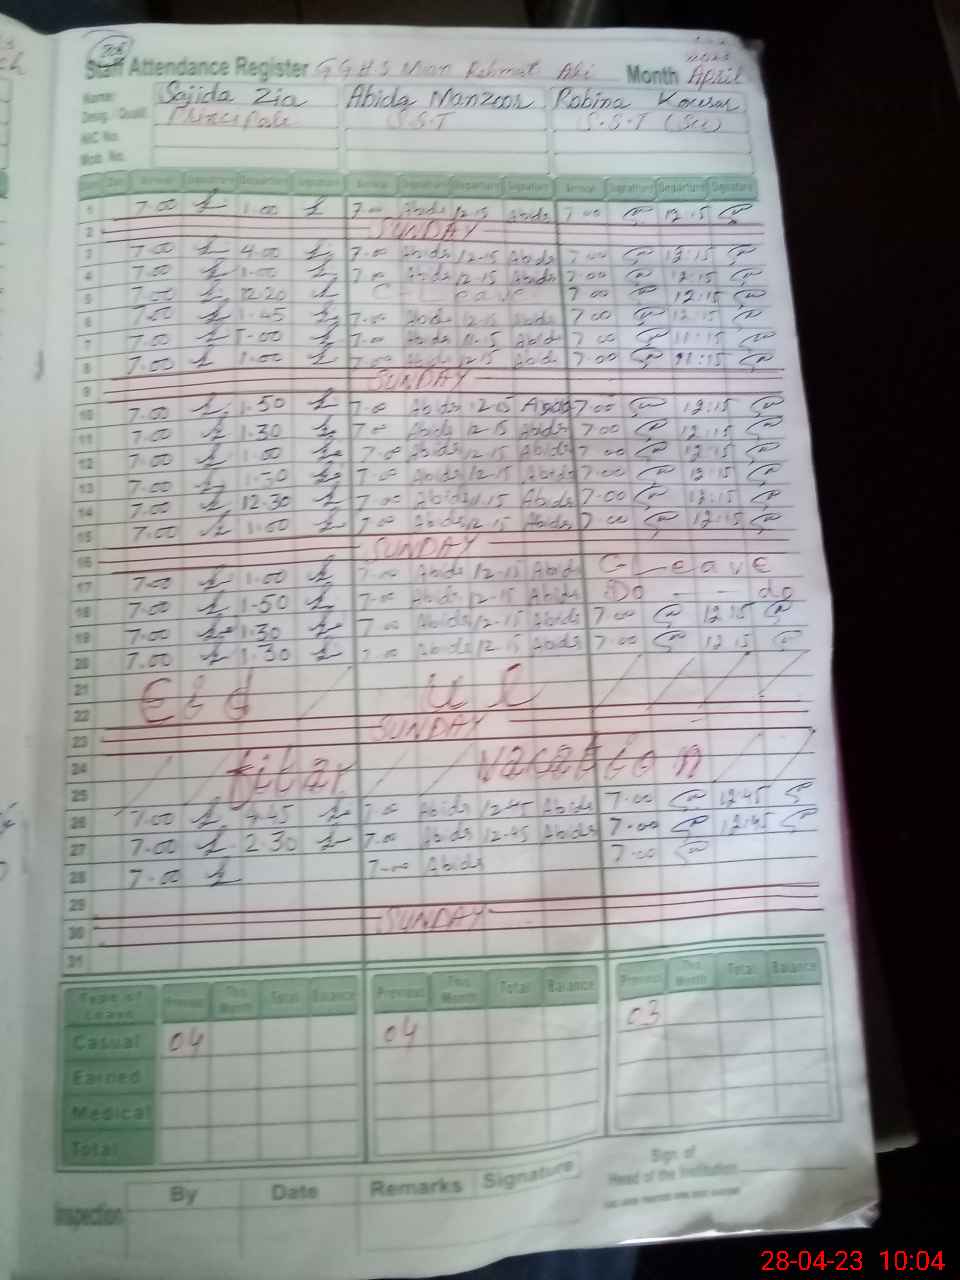 Staff Attendance Register G G H S Mian Rehmat Ali Month April
Name: Sajida Zia Abida Manzoor Robina Kousar
Desig. / Qualif. Principal S.S.T S.S.T (Sci)
NIC No.
Mob. No.
Arrival Signature Departure Signature Arrival Signature Departure Signature Arrival Signature Departure Signature
1 7.00 1.00 7.00 Abida 12-15 Abida 7 00 12:15
2 SUNDAY
3 7.00 4.00 7.00 Abida 12-15 Abida 7 00 12:15
4 7.00 1.00 7.00 Abida 12-15 Abida 7.00 12:15
5 7.00 12.20 C Leave 7 00 12:15
6 7.00 1.45 7.00 Abida 12-15 Abida 7 00 12:15
7 7.00 1.00 7.00 Abida 11-15 Abida 7 00 11:15
8 7.00 1.00 7.00 Abida 12.15 Abida 7.00 11:15
9 SUNDAY
10 7.00 1.50 7.00 Abida 12-15 7.00 12:15
11 7.00 1.30 7.00 Abida 12-15 Abida 7.00 12:15
12 7.00 1.00 7.00 Abida 12-15 Abida 7.00 12:15
13 7.00 1.30 7.00 Abida 12-15 Abida 7.00 12:15
14 7.00 12.30 7.00 Abida 11.15 Abida 7.00 12:15
15 7.00 1.00 7.00 Abida 12-15 Abida 7 00 12:15
16 SUNDAY
17 7.00 1.00 7.00 Abida 12-15 Abida C Leave
18 7.00 1.50 7.00 Abida 12-15 Abida Do - - do
19 7.00 1.30 7.00 Abida 12-15 Abida 7.00 12:15
20 7.00 1.30 7.00 Abida 12-15 Abida 7.00 12 15
21
22 Eid ul
23 SUNDAY
24 fitar vacation
25
26 7.00 4.45 7.00 Abida 12-45 Abida 7.00 12:45
27 7.00 2.30 7.00 Abida 12-45 Abida 7.00 12:45
28 7.00 7.00 Abida 7.00
29
30 SUNDAY
31
Type of Leave Previous This Month Total Balance Previous This Month Total Balance Previous This Month Total Balance
Casual 04 04 03
Earned
Medical
Total
Sign. of
Head of the Institution
Inspection By Date Remarks Signature
28-04-23 10:04